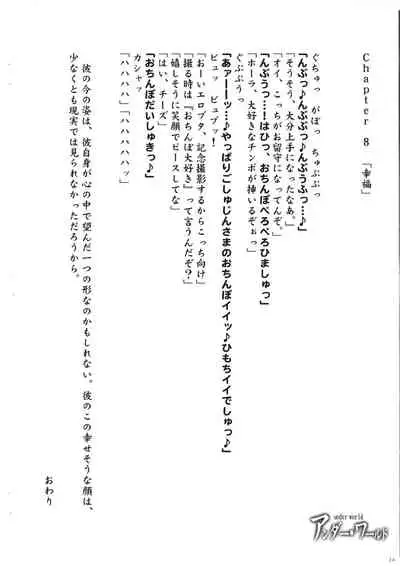 Chapter 8 「幸福」
ぐちゅっ がぽっ ちゅぷぷっ
「んぷっ♪んぷぷっ♪んぷうふっ…♪」
「そうそう、大分上手になったなあ。」
「オイ、こっちがお留守になってんぞ。」
「んぷうっ…！はひっ、おちんぽぺろぺろひましゅっ」
「ホーラ、大好きなチンポが挿いるぞぉっ」
ぐぷぷうっ
「あァーーッ…♪やっぱりごしゅじんさまのおちんぽイイッ♪ひもちイイでしゅっ♪」
ビュッ ビュブッ！
「おーいエロブタ、記念撮影するからこっち向け」
「撮る時は『おちんぽ大好き』って言うんだぞ？」
「嬉しそうに笑顔でピースしてな」
「はい、チーズ」
「おちんぽだいしゅきっ♪」
カシャッ
「ハハハハ」「ハハハハハッ」
彼の今の姿は、彼自身が心の中で望んだ一つの形なのかもしれない。彼のこの幸せそうな顔は、
少なくとも現実では見られなかっただろうから。
おわり
under world
アンダー・ワールド